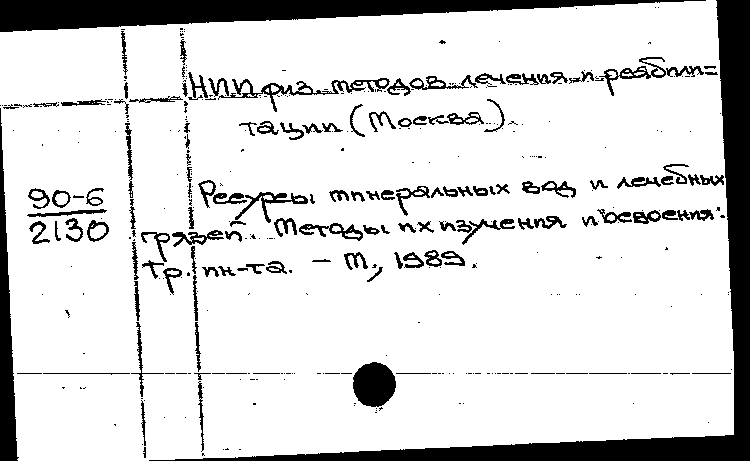 НИИ физ. методов лечения и реабили=
тации (Москва).
90-6
2130
Ресурсы минеральных вод и лечебных
грязей. Методы их изучения и освоения:
Тр. ин-та. – М., 1989.